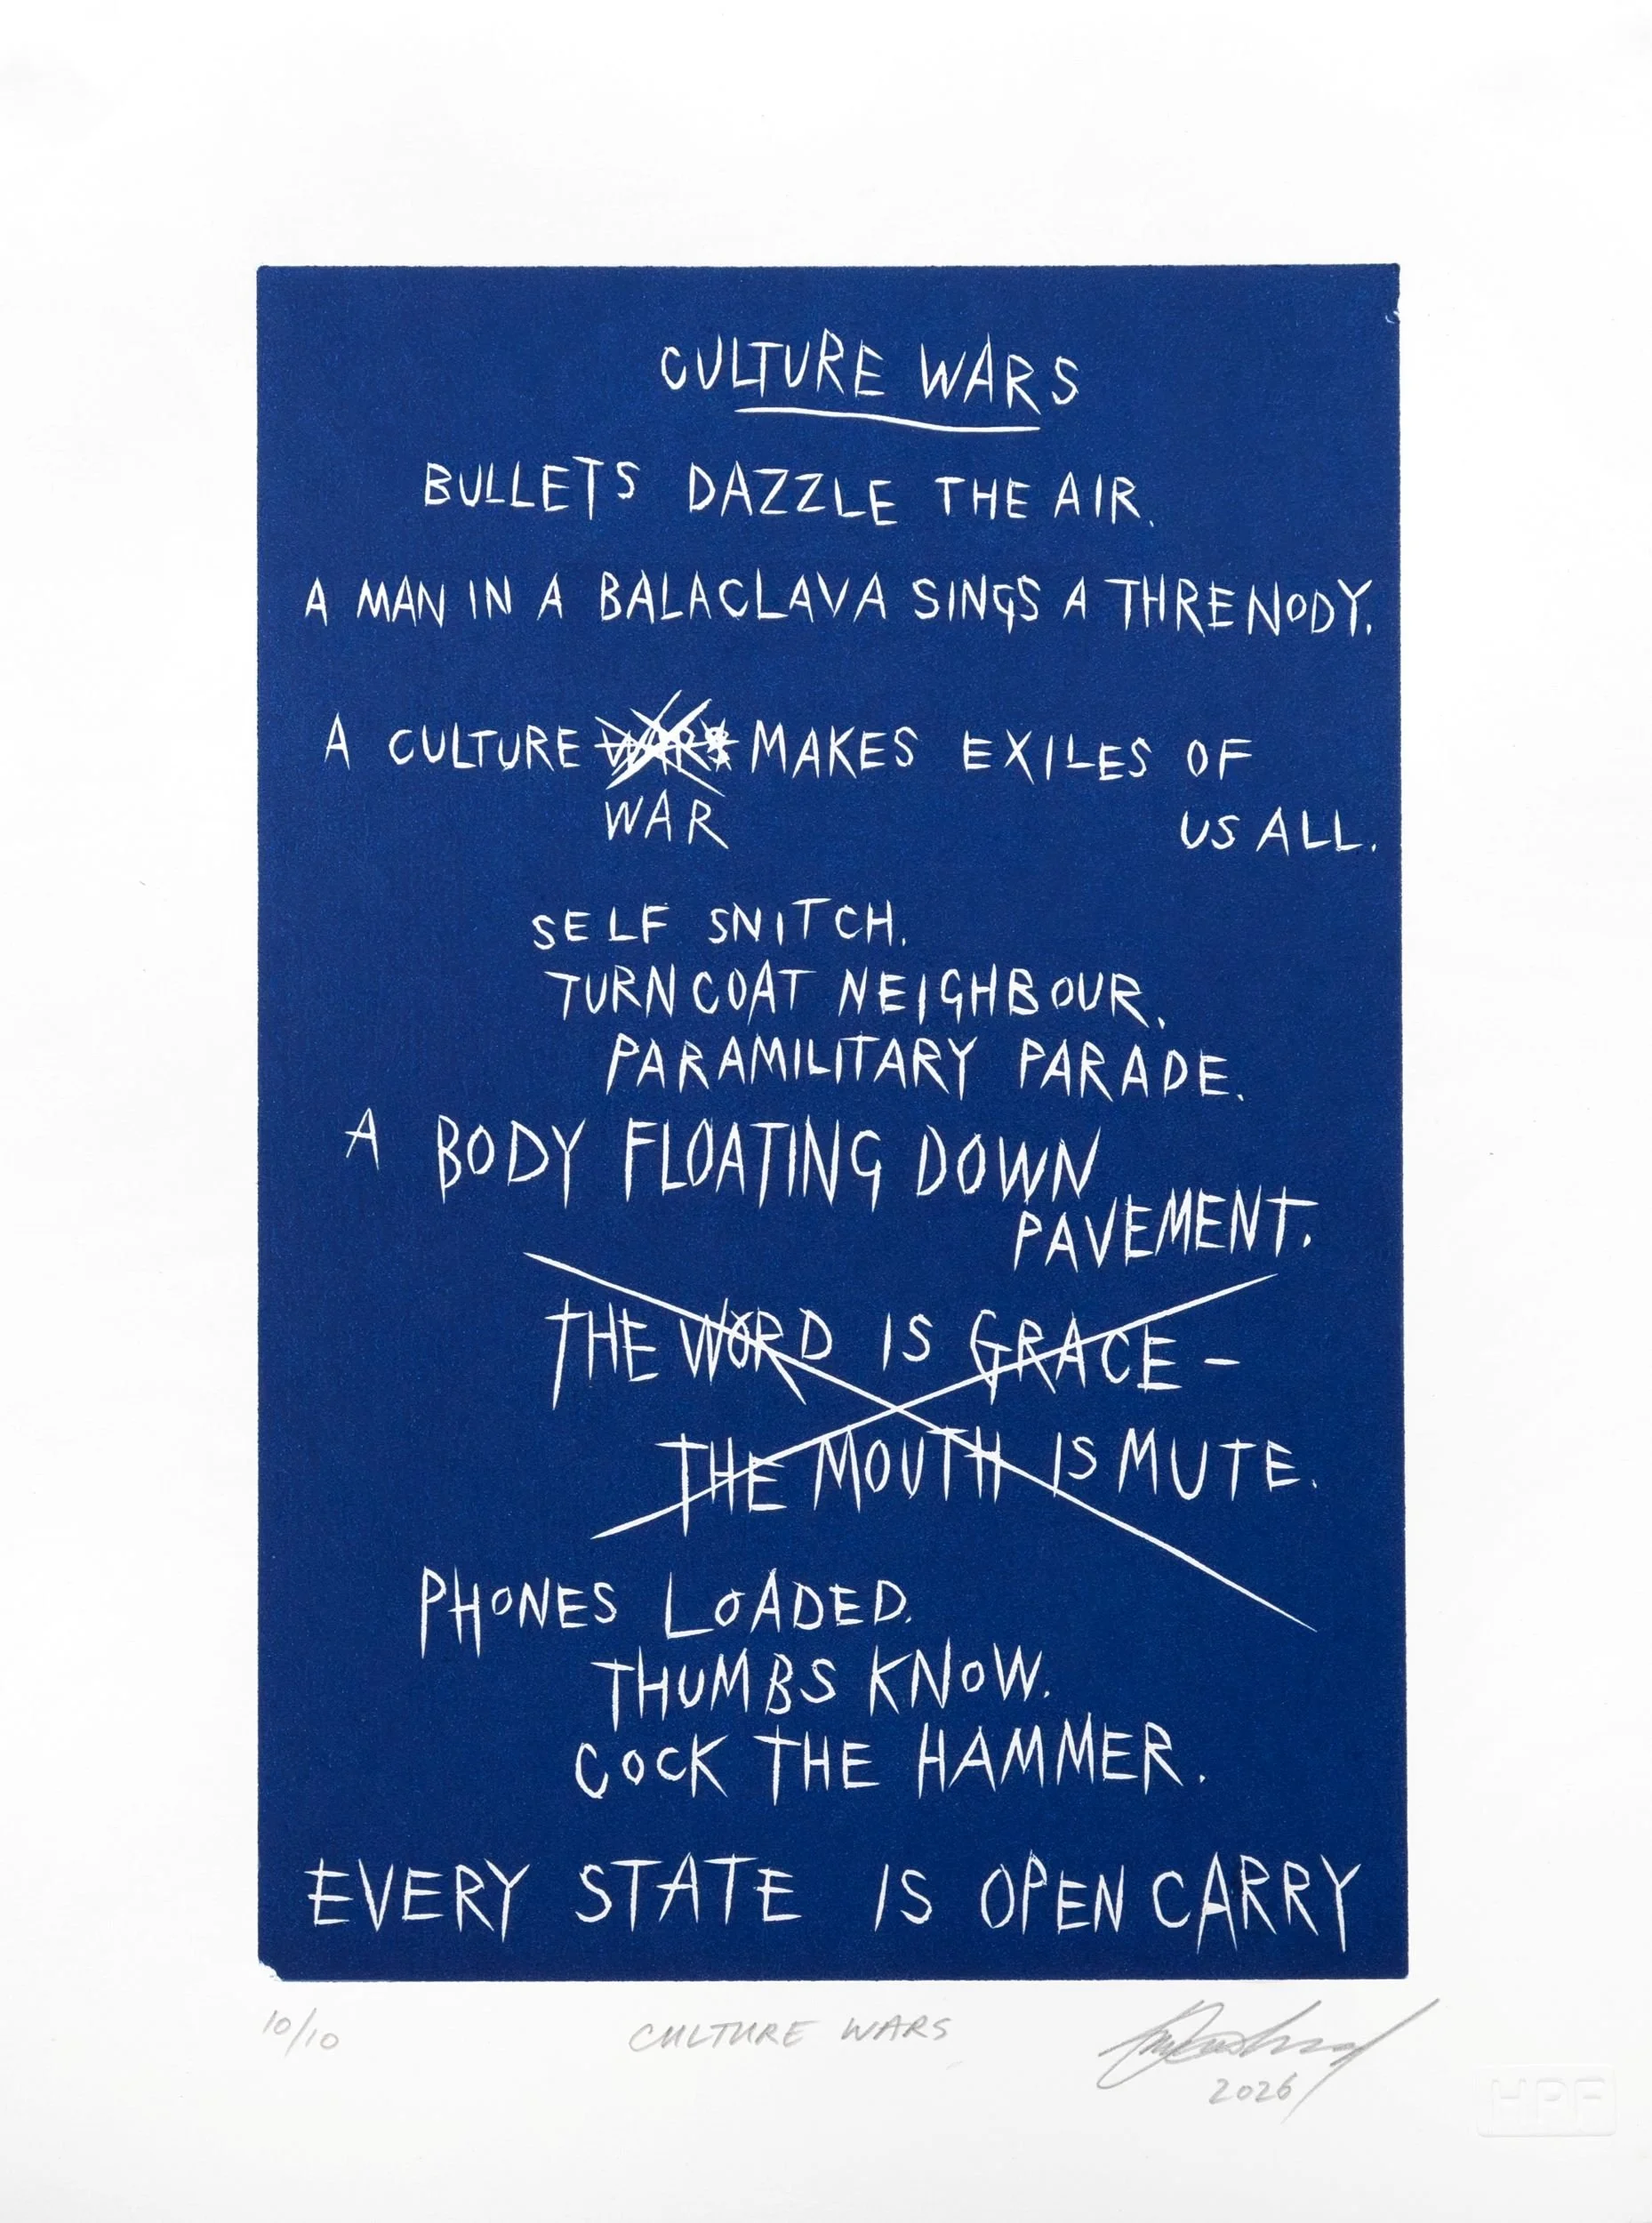 CULTURE WARS
BULLETS DAZZLE THE AIR.
A MAN IN A BALACLAVA SINGS A THRENODY.
A CULTURE WARS MAKES EXILES OF
WAR US ALL.
SELF SNITCH.
TURNCOAT NEIGHBOUR.
PARAMILITARY PARADE.
A BODY FLOATING DOWN
PAVEMENT.
THE WORD IS GRACE –
THE MOUTH IS MUTE.
PHONES LOADED.
THUMBS KNOW.
COCK THE HAMMER.
EVERY STATE IS OPEN CARRY
10/10 CULTURE WARS
2026
HPF